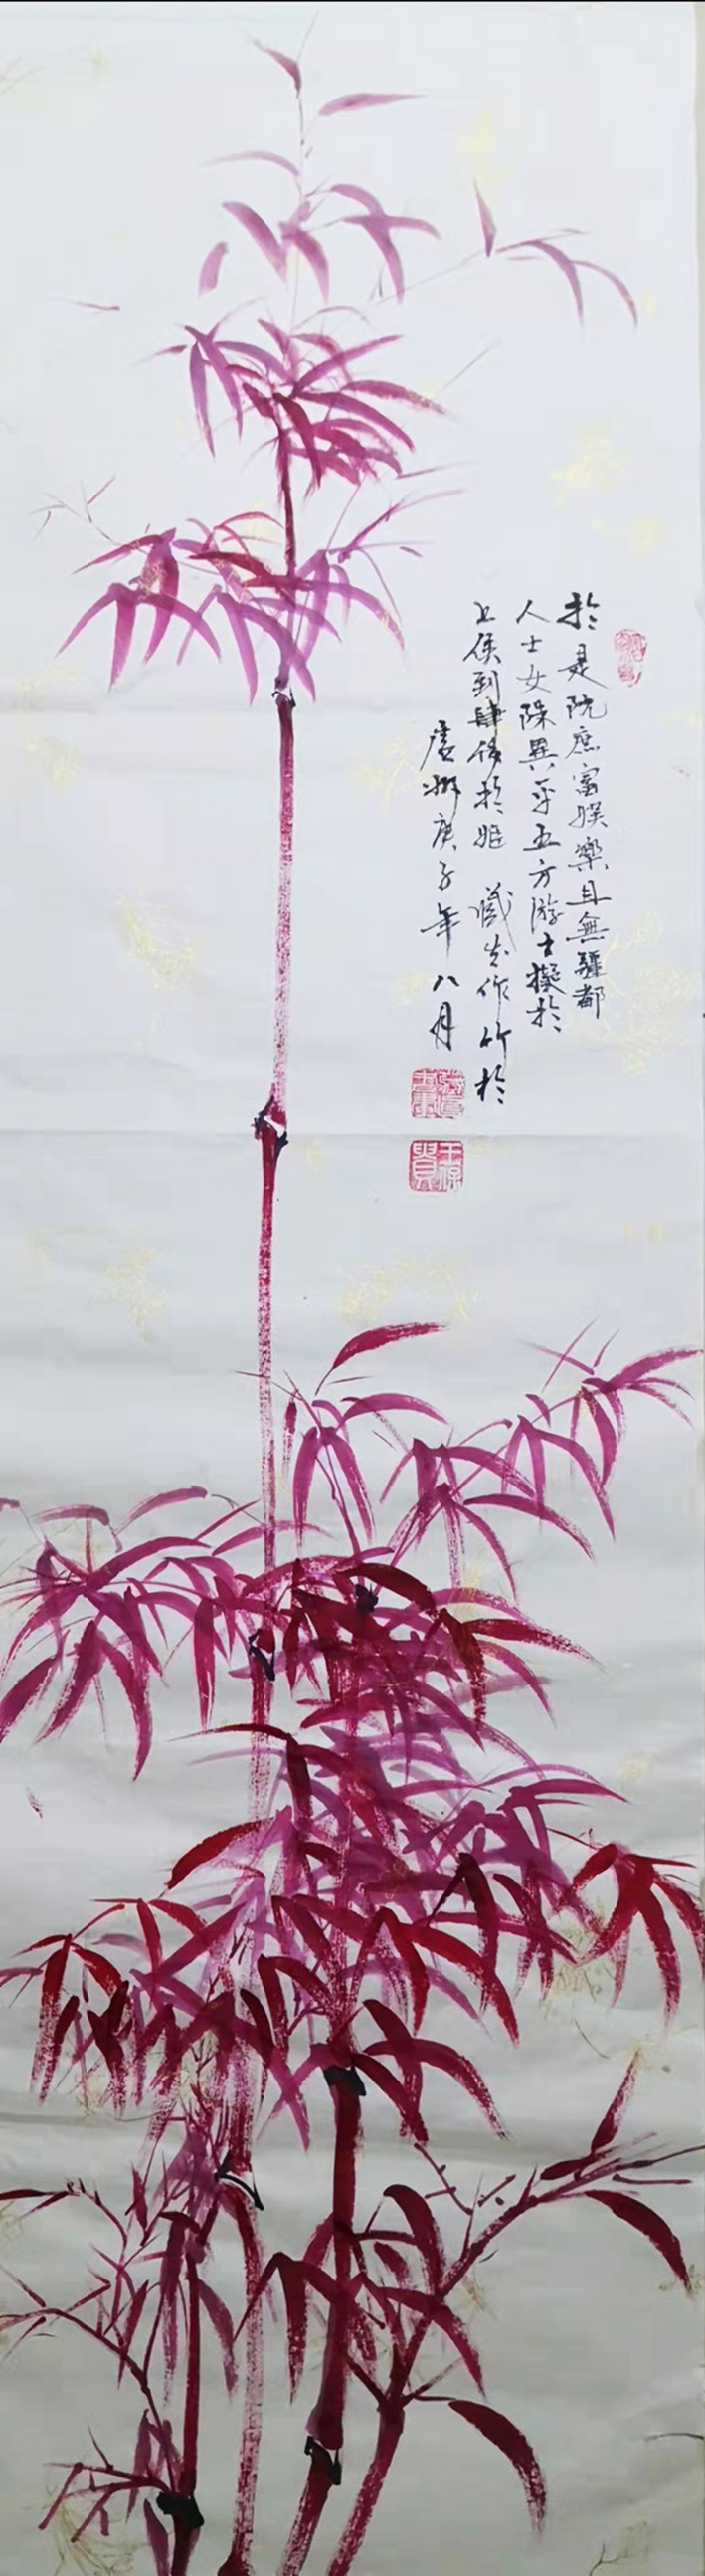 於是既庶富娛樂且無疆都
人士女殊異乎五方游士擬於
公侯列肆侈於姬 識岀作竹於
虔州庚子年八月